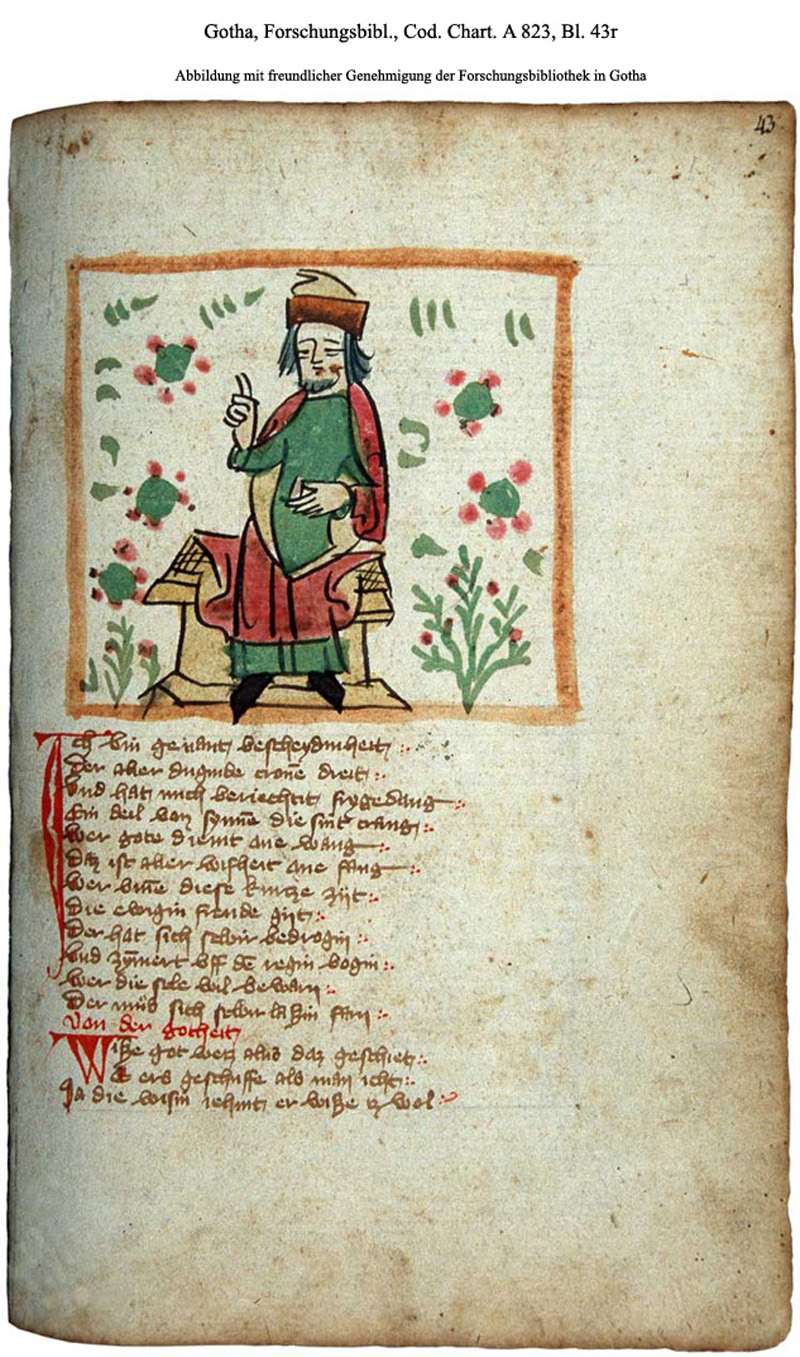 Gotha, Forschungsbibl., Cod. Chart. A 823, Bl. 43r
Abbildung mit freundlicher Genehmigung der Forschungsbibliothek in Gotha
43
Ich bin genant bescheydinheit
Der aller duginde crone dreit
Und hat mich berichtit frygedang
Ein deil von synne die sint crang
Wer gote dienit ane wang
Daz ist aller wisheit ane fang
Wer vme diese kurtze zijt
Die ewigin freude gijt
Der hat sich selbir bedrogin
Und zymert vff de regin bogin
Wer die sele wil bewarn
Der muß sich selbir laßin farn
Von der gotheit
Wiße got wol alles daz geschiet
E ers geschuffe als man icht
Ja die wisin iehint er wiße iz wol